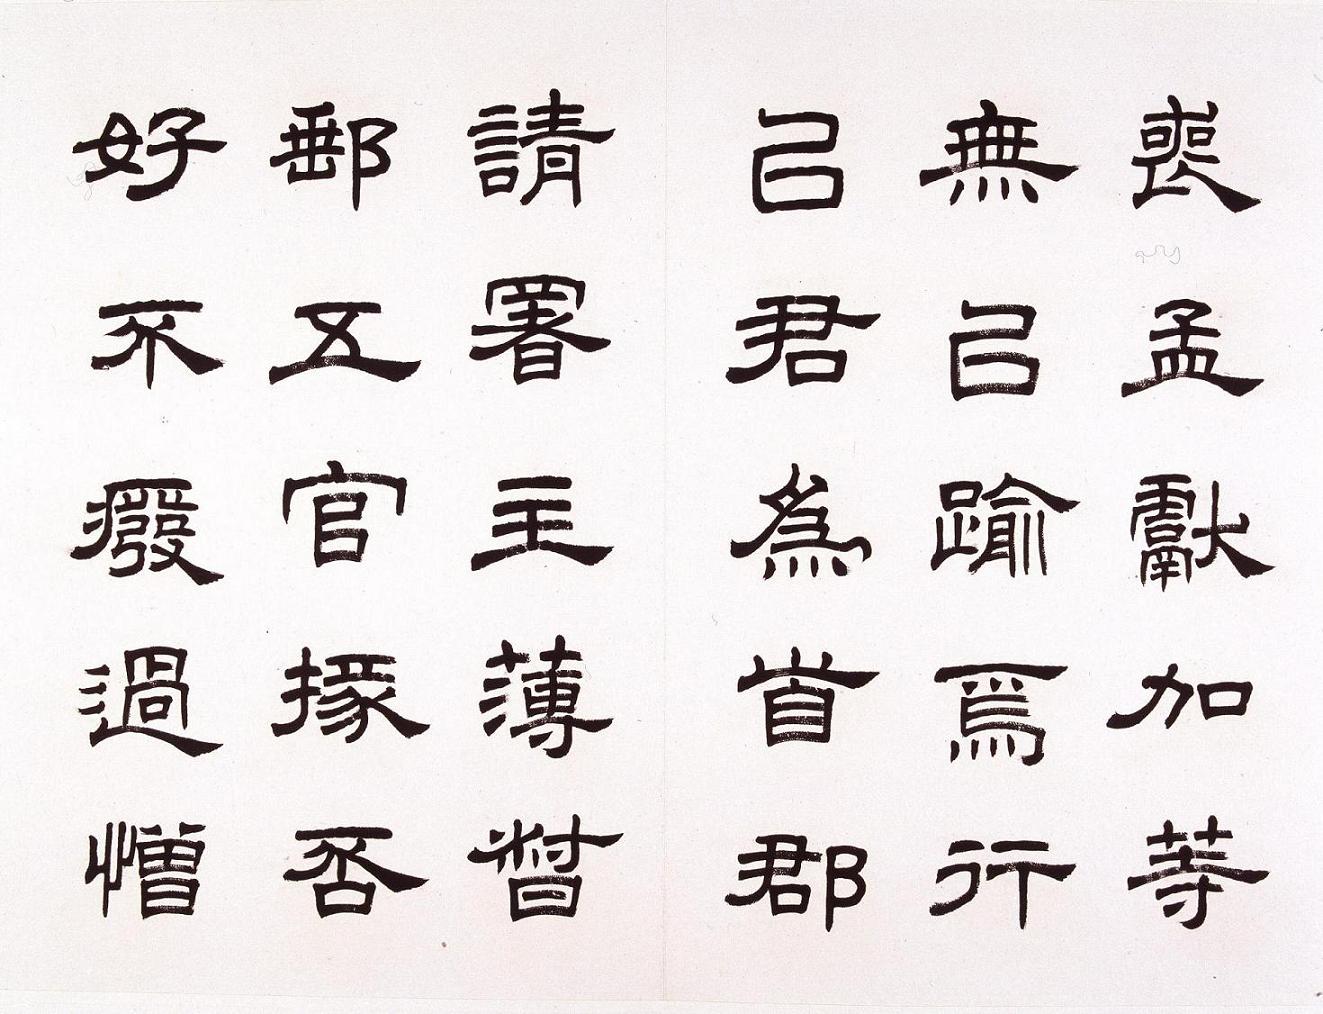 喪孟獻加等
無㠯踰焉行
㠯君為首郡
請署主薄督
郵五官掾否
好不癈過憎